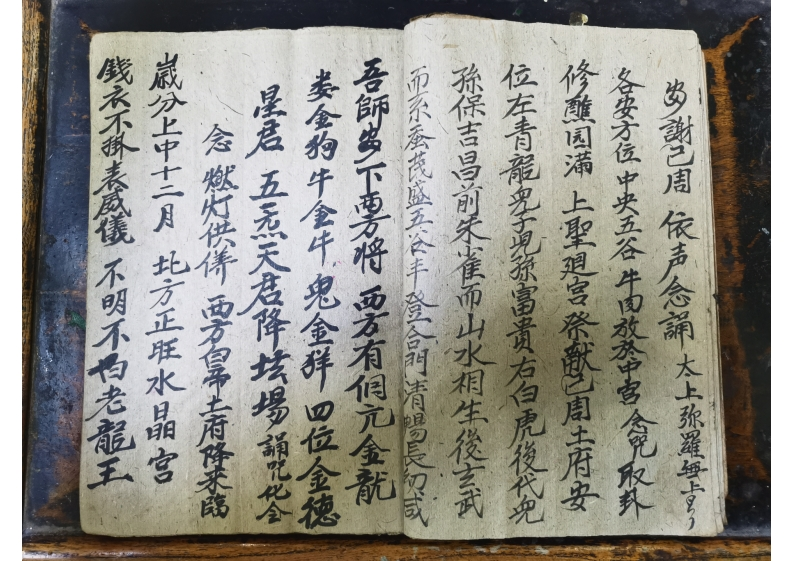 安謝已周 依声念誦 太上弥羅無上
各安方位 中央五谷 牛肉放於中宫 念咒取卦
修醮园满 上聖廻宫 祭献已周 土府安
位左青龍兒子兒孫富貴右白虎後代兒
孫保吉昌前朱雀而山水相生後玄武
而糸蚕茂盛五谷丰登合門清暢長幼咸
吾師安下西方將 西方有個亢金龍
娄金狗牛金牛 鬼金羊 四位金德
星君 五炁天君降坛場 誦咒化全
念 燃灯供养 西方白帝土府降来臨
歲分上中十二月 北方正旺水晶宮
錢衣不掛表威儀 不明不灼老龍王